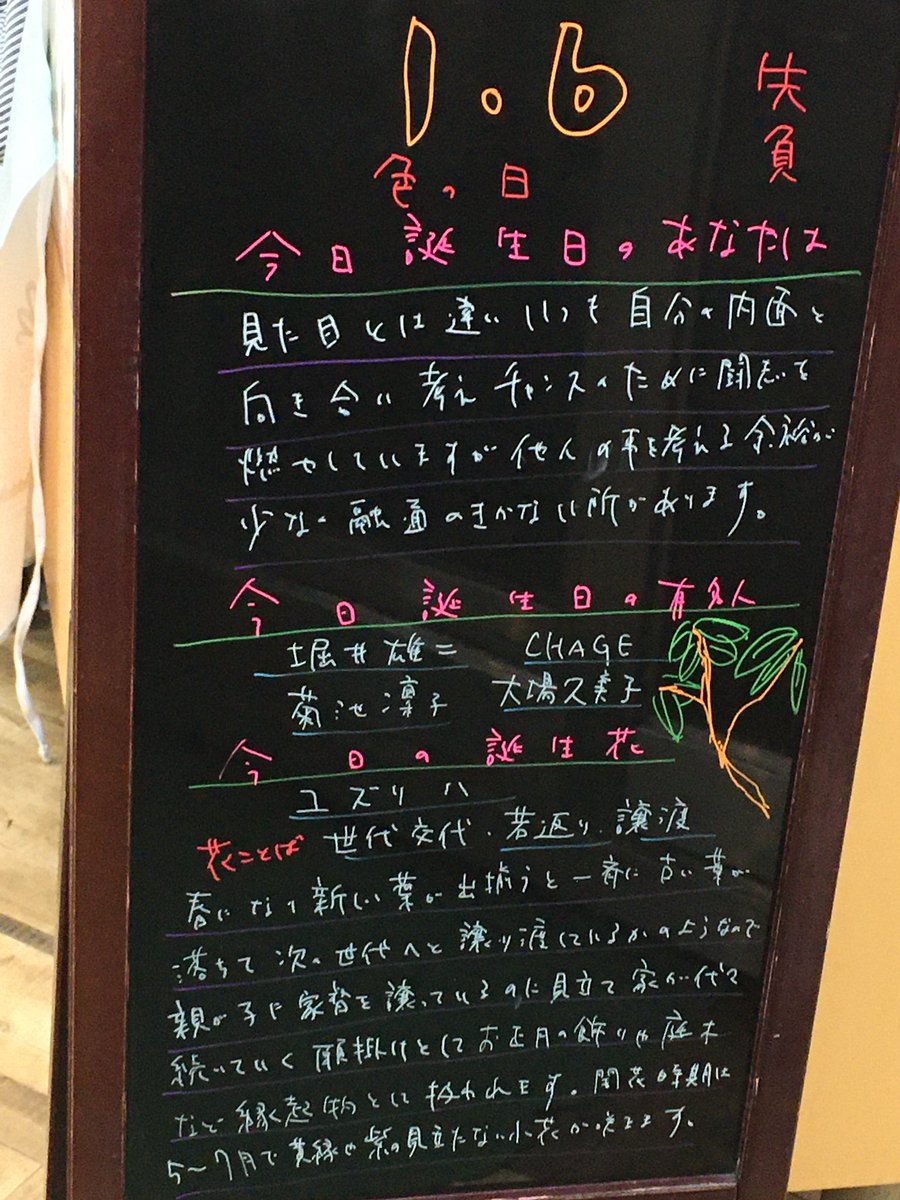 1.6
先負
色の日
今日誕生日のあなたは
見た目とは違いいつも自分の内面と
向き合い考えチャンスのために闘志を
燃やしていますが他人の事を考える余裕が
少ない融通のきかない所があります。
今日誕生日の有名人
堀井雄二 CHAGE
菊池凛子 大場久美子
今日の誕生花
ユズリハ
花ことば 世代交代・若返り・譲渡
春になり新しい葉が出揃うと一斉に古い葉が
落ちて次の世代へと譲り渡しているかのようなので
親が子に家督を譲っているのに見立て家が代々
続いていく願掛けとしてお正月の飾りや庭木
など縁起物として扱われます。開花時期は
5〜7月で黄緑や紫の見立たない小花が咲きます。